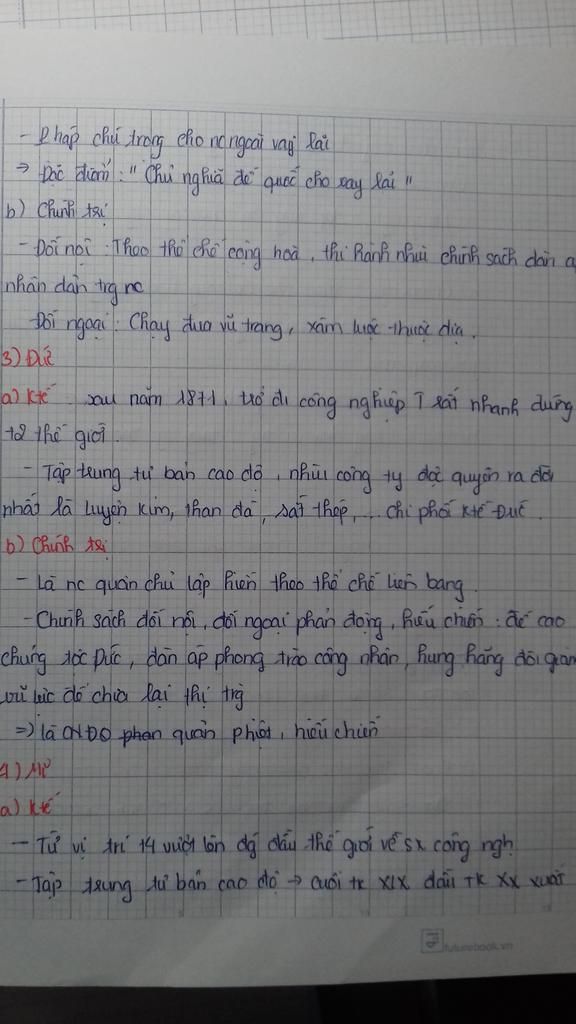 - Pháp chú trọng cho nc ngoài vay lãi
⇒ Đặc điểm: "Chủ nghĩa đế quốc cho vay lãi"
b) Chính trị
- Đối nội: Theo thể chế cộng hoà, thi hành nhìu chính sách đàn á
nhân dân trg nc
Đối ngoại: Chạy đua vũ trang, xâm lược thuộc địa.
3) Đức
a) Ktế sau năm 1871, trở đi công nghiệp ↑ rất nhanh đứng
t2 thế giới.
- Tập trung tư bản cao độ, nhìu công ty độc quyền ra đời
nhất là luyện kim, than đá, sắt thép,... chi phối Ktế Đức.
b) Chính trị
- Là nc quân chủ lập hiến theo thể chế liên bang.
- Chính sách đối nội, đối ngoại phản động, hiếu chiến: đề cao
chủng tộc Đức, đàn áp phong trào công nhân, hung hăng đòi
vũ lực để chia lại thị trg
=> là CNĐQ quân phiệt, hiếu chiến
4) Mĩ
a) Ktế
- Từ vị trí t4 vượt lên đg đầu thế giới về sx công ngh
- Tập trung tư bản cao độ → cuối tk XIX đầu TK XX xuất
futurebook.vn